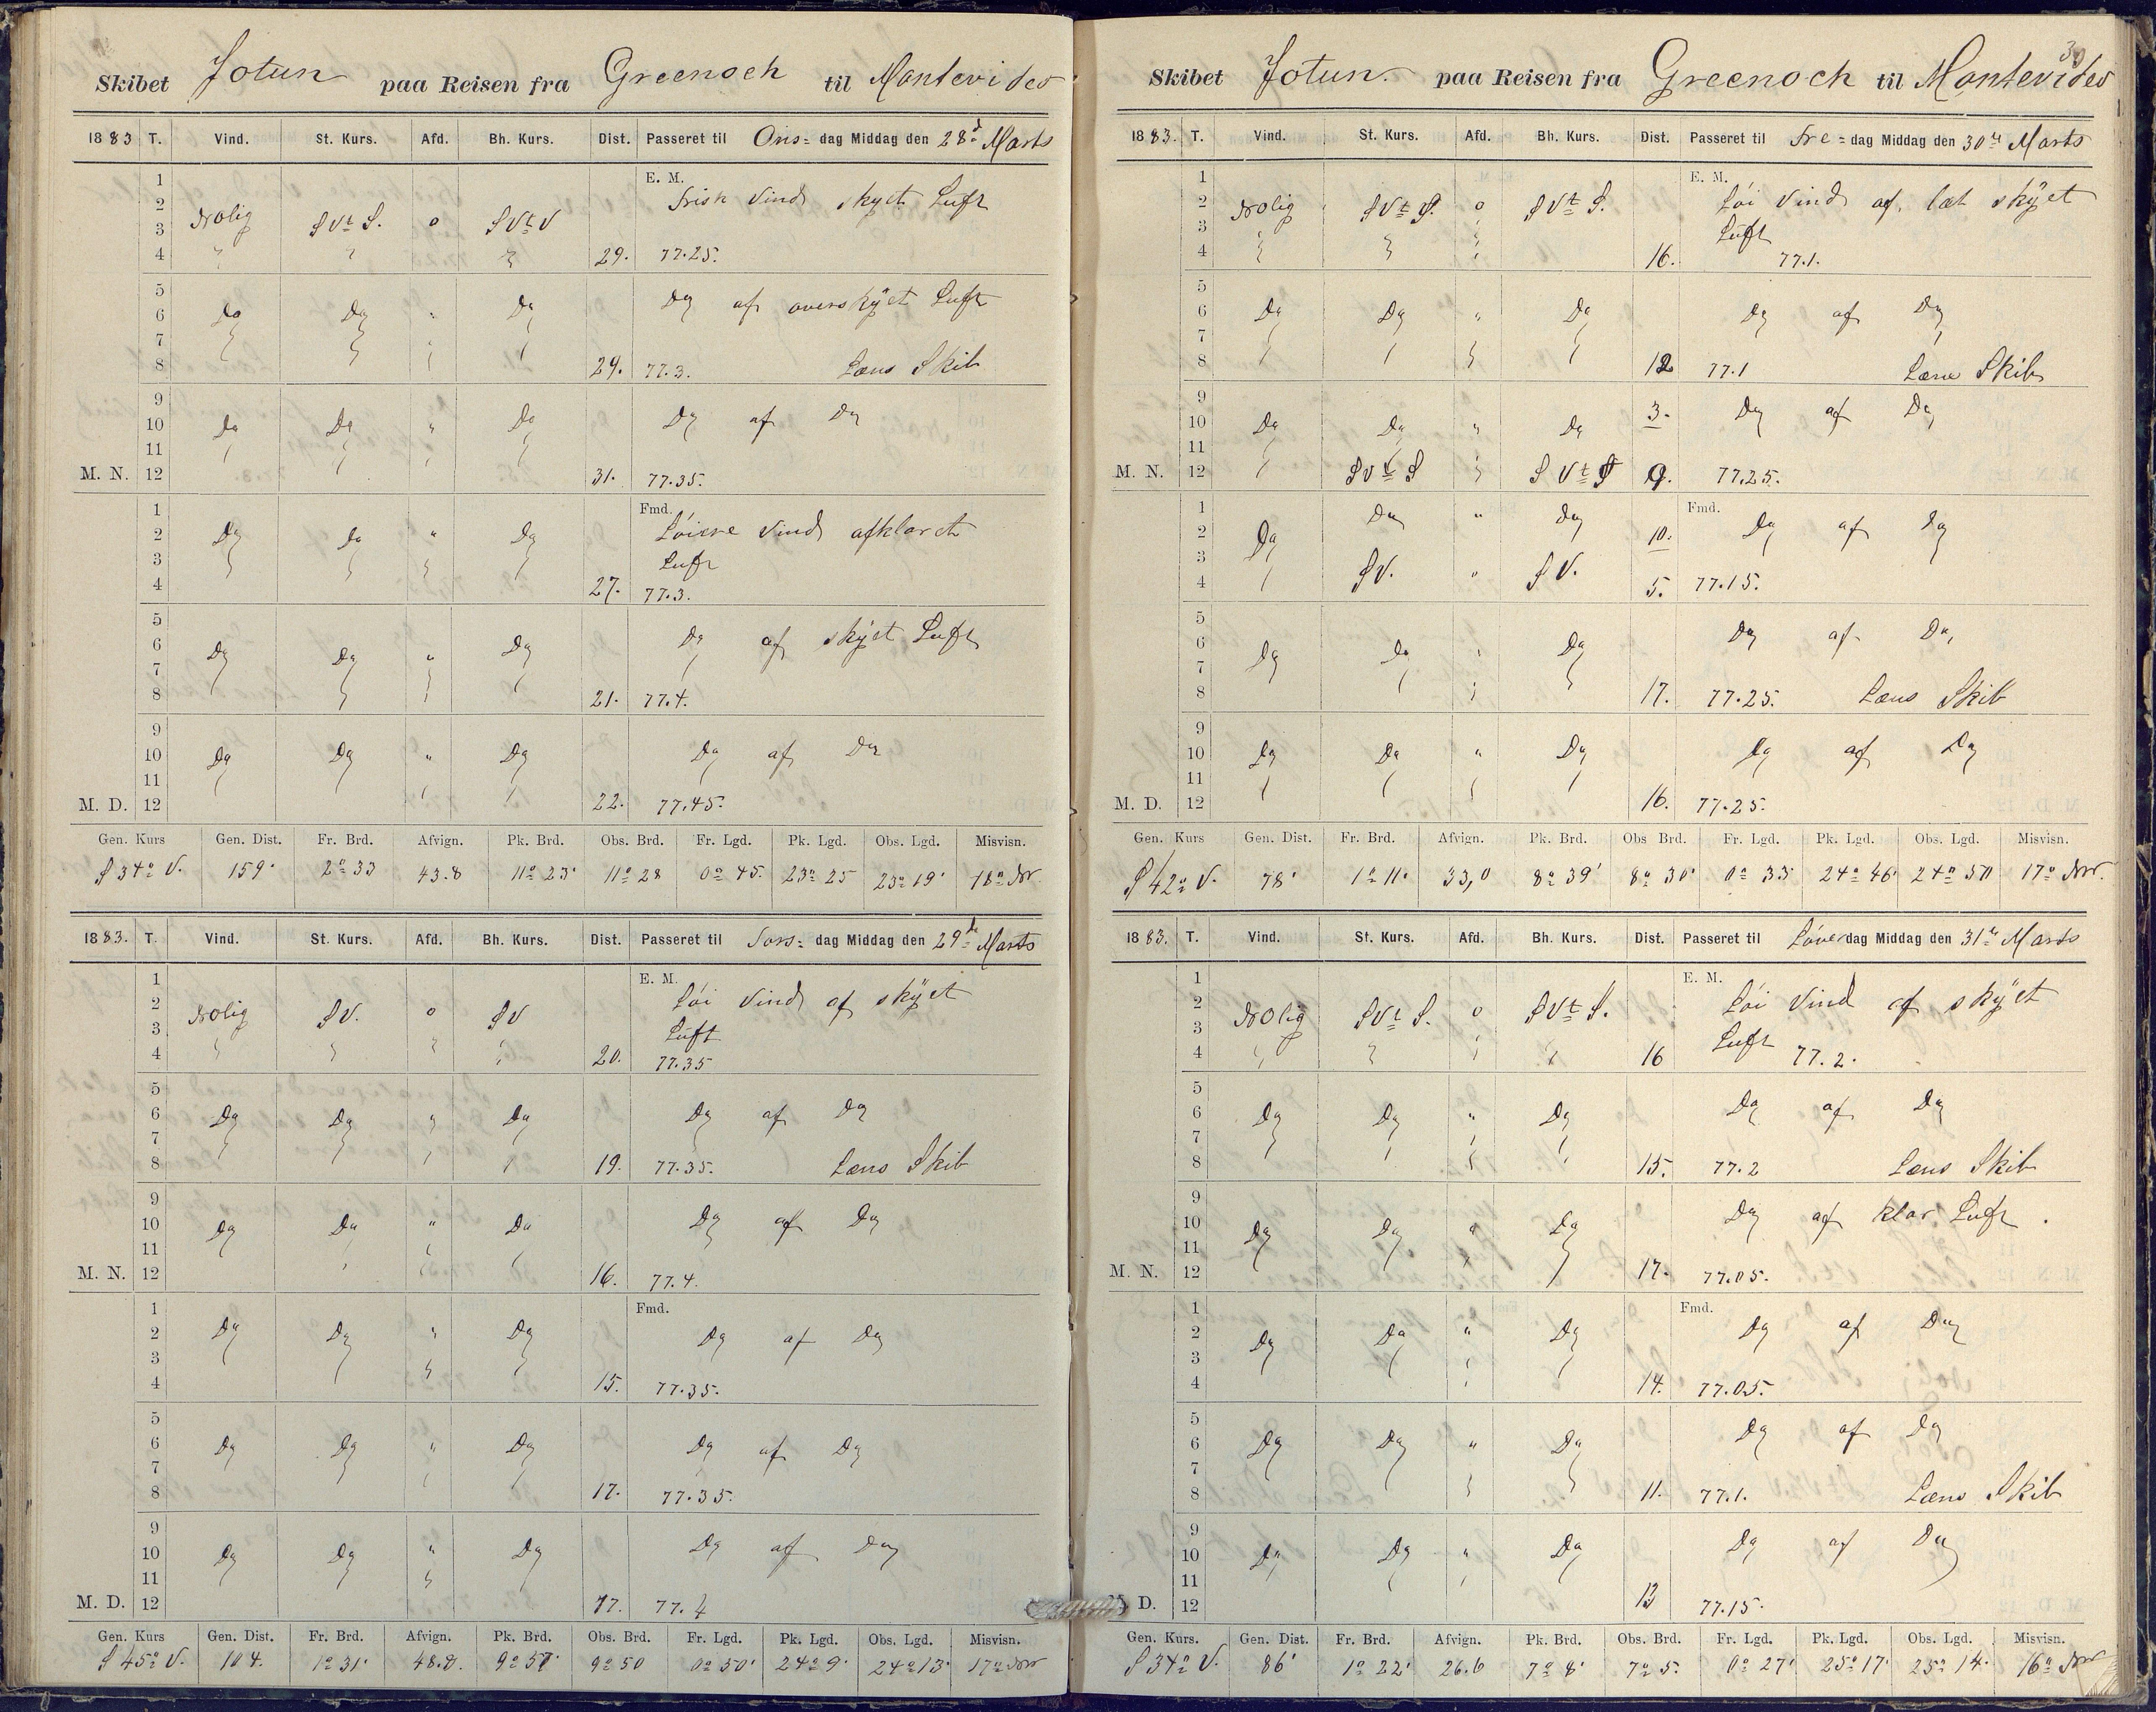 Skibet Jotun paa Reisen fra Greenock til Montevideo
1883 T. Vind. St. Kurs. Afd. Bh. Kurs. Dist. Passeret til Ons= dag Middag den 28d Marts
1 E. M.
2 Frisk Vind skyet Luft
3 NOlig SVt S. o SVt V
4 " " " 29. 77.25.
5
6 Do Do " Do Do af overskÿet Luft
7
8 29. 77.3. Læns Skib
9
10 Do Do " Do Do af Do
11
M. N. 12 31. 77.35.
1 Fmd.
2 Do Do " Do Løiere Vind afklaret
3 Luft
4 27. 77.3.
5
6 Do Do " Do Do af skÿet Luft
7
8 21. 77.4.
9
10 Do Do " Do Do af Do
11
M. D. 12 22. 77.45.
Gen. Kurs Gen. Dist. Fr. Brd. Afvign. Pk. Brd. Obs. Brd. Fr. Lgd. Pk. Lgd. Obs. Lgd. Misvisn.
S 34° V. 159' 2° 33 43.8 11° 23' 11° 28 0° 45. 23° 25 23° 19' 18° NW
1883. T. Vind. St. Kurs. Afd. Bh. Kurs. Dist. Passeret til Tors= dag Middag den 29d Marts
1 E. M.
2 NOlig SV. o SV Løi Vind af skÿet
3 Luft
4 " " " " 20. 77.35
5
6 Do Do " Do Do af Do
7
8 19. 77.35. Læns Skib
9
10 Do Do " Do Do af Do
11
M. N. 12 16. 77.4.
1 Fmd.
2 Do Do " Do Do af Do
3
4 15. 77.35.
5
6 Do Do " Do Do af Do
7
8 17. 77.35.
9
10 Do Do " Do Do af Do
11
M. D. 12 17. 77.4
Gen. Kurs Gen. Dist. Fr. Brd. Afvign. Pk. Brd. Obs. Brd. Fr. Lgd. Pk. Lgd. Obs. Lgd. Misvisn.
S 45° V. 104. 1° 31' 48.8. 9° 57' 9° 50 0° 50' 24° 9' 24° 13' 17° NW
30
Skibet Jotun. paa Reisen fra Greenock til Montevideo
1883. T. Vind. St. Kurs. Afd. Bh. Kurs. Dist. Passeret til Fre= dag Middag den 30te Marts
1 E. M.
2 NOlig SVt S. o SVt S. Løi Vind af. let skÿet
3 Luft
4 " " " 16. 77.1.
5
6 Do Do " Do Do af Do
7
8 12 77.1 Læns Skib
9 3. Do af Do
10 Do Do " Do
11
M. N. 12 SVt S SVt S 9. 77.25.
1 Fmd.
2 Do Do " Do 10. Do af Do
3
4 SV. " SV. 5. 77.15.
5
6 Do Do " Do Do af Do,
7
8 17. 77.25. Læns Skib
9
10 Do Do " Do Do af Do
11
M. D. 12 16. 77.25.
Gen. Kurs Gen. Dist. Fr. Brd. Afvign. Pk. Brd. Obs Brd. Fr. Lgd. Pk. Lgd. Obs. Lgd. Misvisn.
S 42° V. 78' 1° 11' 33,0 8° 39' 8° 30' 0° 33 24° 46' 24° 50 17° NW.
1883. T. Vind. St. Kurs. Afd. Bh. Kurs. Dist. Passeret til Løver dag Middag den 31te Marts
1 E. M.
2 NOlig SVt S. o SVt S. Løi Vind af skÿet
3 Luft
4 " " " " 16 77.2.
5
6 Do Do " Do Do af Do
7
8 15. 77.2 Læns Skib
9
10 Do Do " Do Do af klar Luft.
11
M. N. 12 17. 77.05.
1 Fmd.
2 Do Do " Do Do af Do
3
4 14. 77.05.
5
6 Do Do " Do Do af Do
7
8 11. 77.1. Læns Skib
9
10 Do Do " Do Do af Do
11
D. 12 13 77.15.
Gen. Kurs. Gen. Dist. Fr. Brd. Afvign. Pk. Brd. Obs. Brd. Fr. Lgd. Pk. Lgd. Obs. Lgd. Misvisn.
S 34° V. 86' 1° 22' 26.6 7° 8' 7° 5. 0° 27' 25° 17' 25° 14. 16° NW